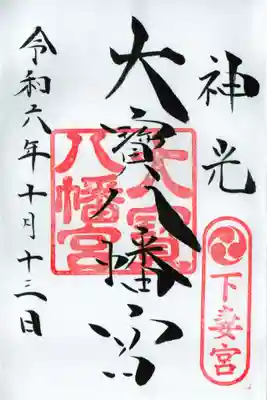 神光
大寳八幡宮
令和六年十月十三日
大寳
八幡宮
下妻宮